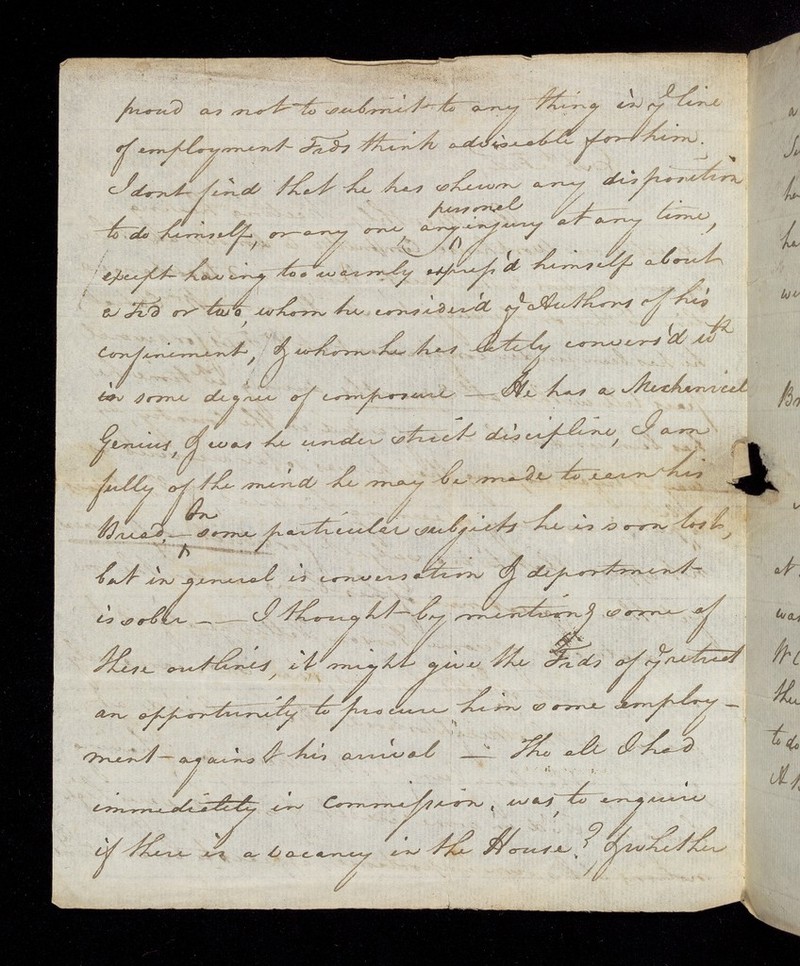 proud as not to submit to any thing in yͤ line
of employment Frds think adviseable for him.
I dont find that he has shewn any disposition
personal
to do himself, or any one, any injury at any time,
except having too warmly express'd himself about
a Frd or two, whom he consider'd yͤ Authors of his
confinement, & whom he has lately convers'd wth
in some degree of composure — He has a Mechanical
Genius, & was he under strict discipline, I am
fully of the mind he may be made to earn his
On
Bread. — some particular subjects he is soon lost,
but in general is conversation & deportment
is sober — — I thought by mentiong some of
these outlines, it might give the Frds of yͤ retreat
an opportunity to procure him some employ-
ment against his arrival — Tho all I had
immediately in Commission, was, to enquire
if there is a vacancy in the House? & whether
a
ha
he
Br
at
was
the
to do